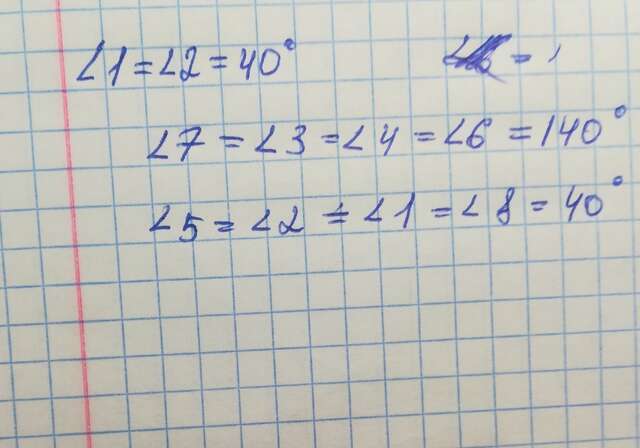 ∠1 = ∠2 = 40°
∠7 = ∠3 = ∠4 = ∠6 = 140°
∠5 = ∠2 = ∠1 = ∠8 = 40°